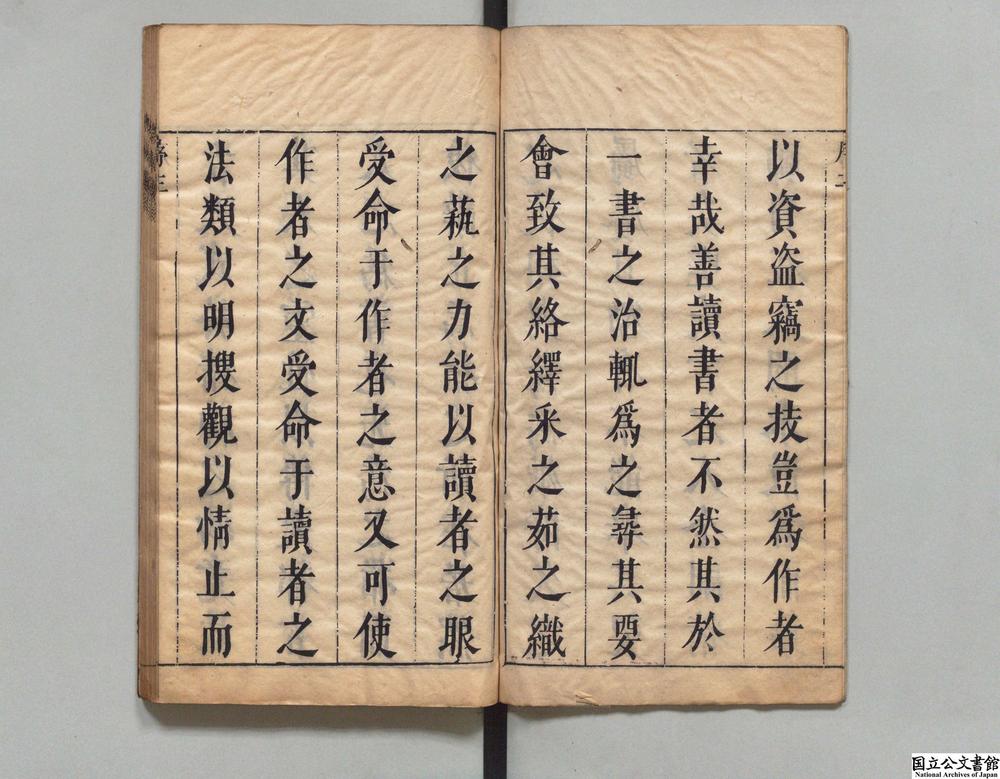 以資盜竊之技豈爲作者
幸哉善讀書者不然其於
一書之治輒爲之尋其要
會致其絡繹采之茹之織
之蓺之力能以讀者之眼
受命于作者之意又可使
作者之文受命于讀者之
法類以明搜觀以情止而
序三
国立公文書館
National Archives of Japan